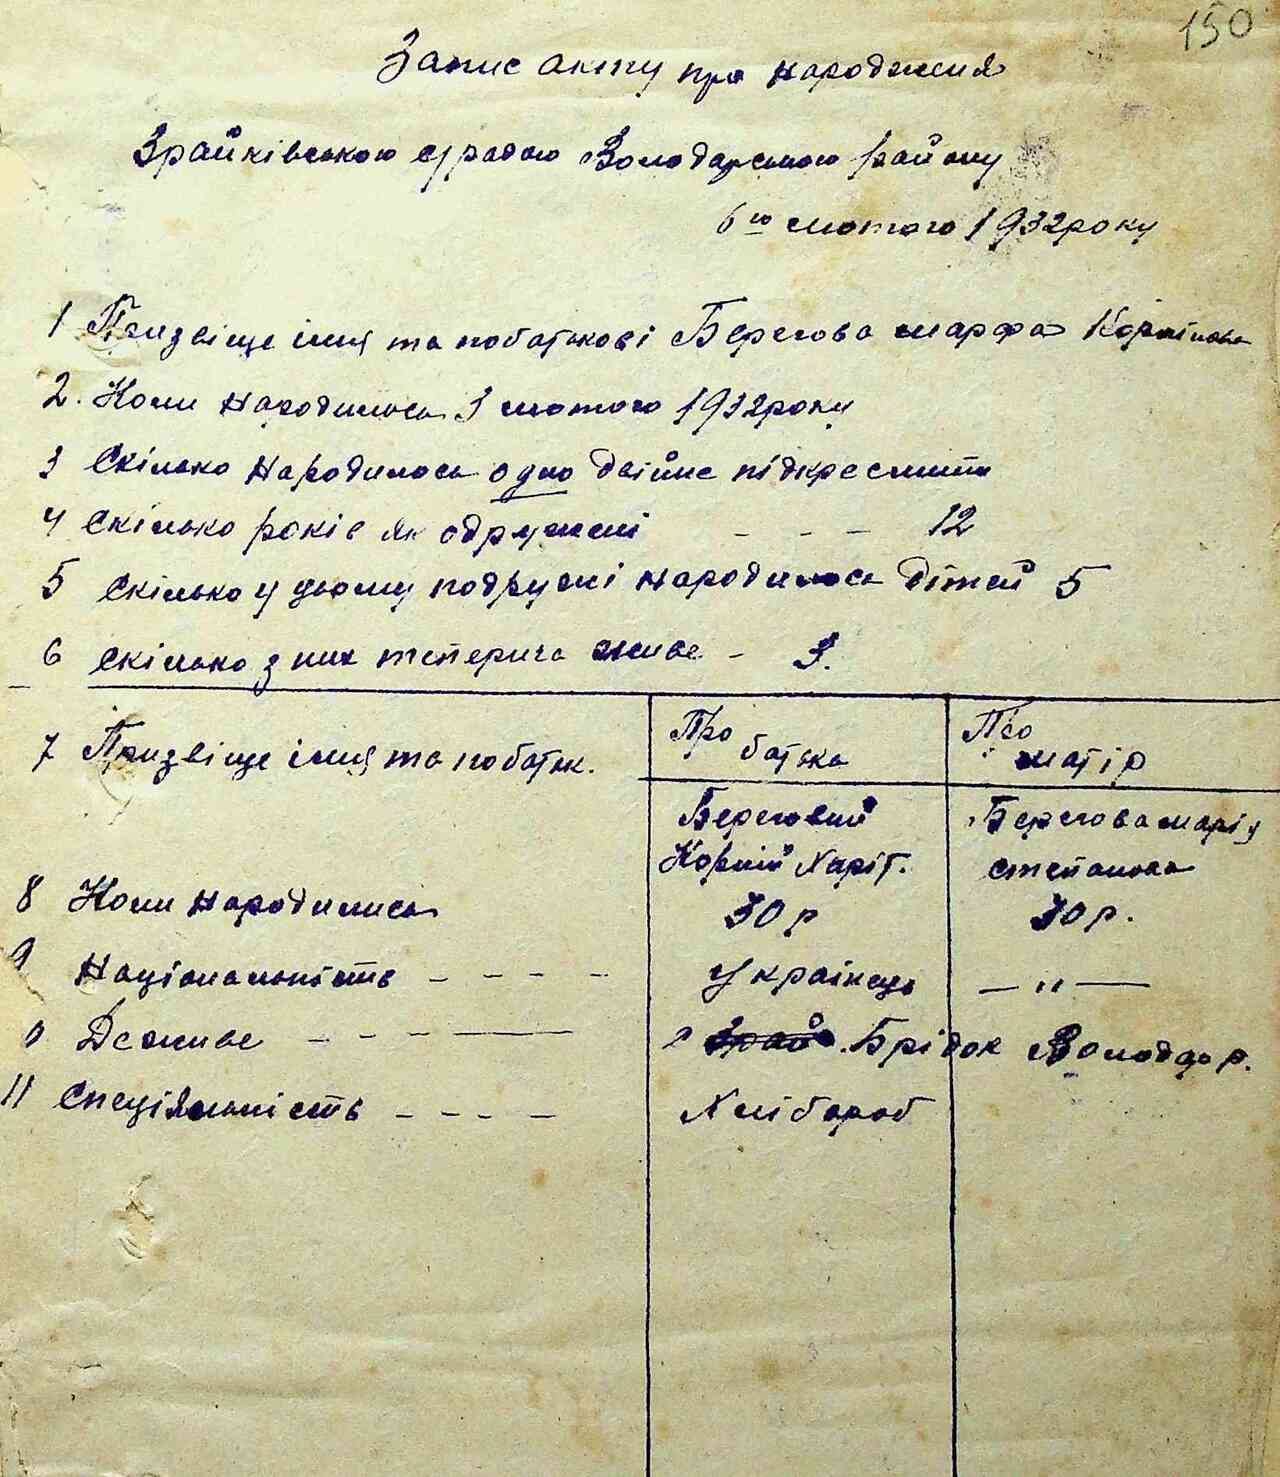 150
Запис акту про народження
Зрайківською с/радою Володарського району
6го лютого 1932 року
1 Призвіще імя та побатькові Берегова марфа Корніївна
2. Коли народилось 3 лютого 1932 року
3 Скілько народилось одно двійне підкреслити
4 Скілько років як одружені - - - 12
5 Скілько у цьому подружжі народилось дітей 5
6 Скілько з них теперича живе - 3.
7 Призвіще імя та побатьк.
Про батька
Про матір
Береговий Берегова марія
Корній Харіт. степановна
8 Коли народились 30 р 30 р.
9 Національність - - - - Українець — " —
Де живе - - - — с. Зрай. Брідок Володар р.
11 Спеціяльність - - - - Хлібороб